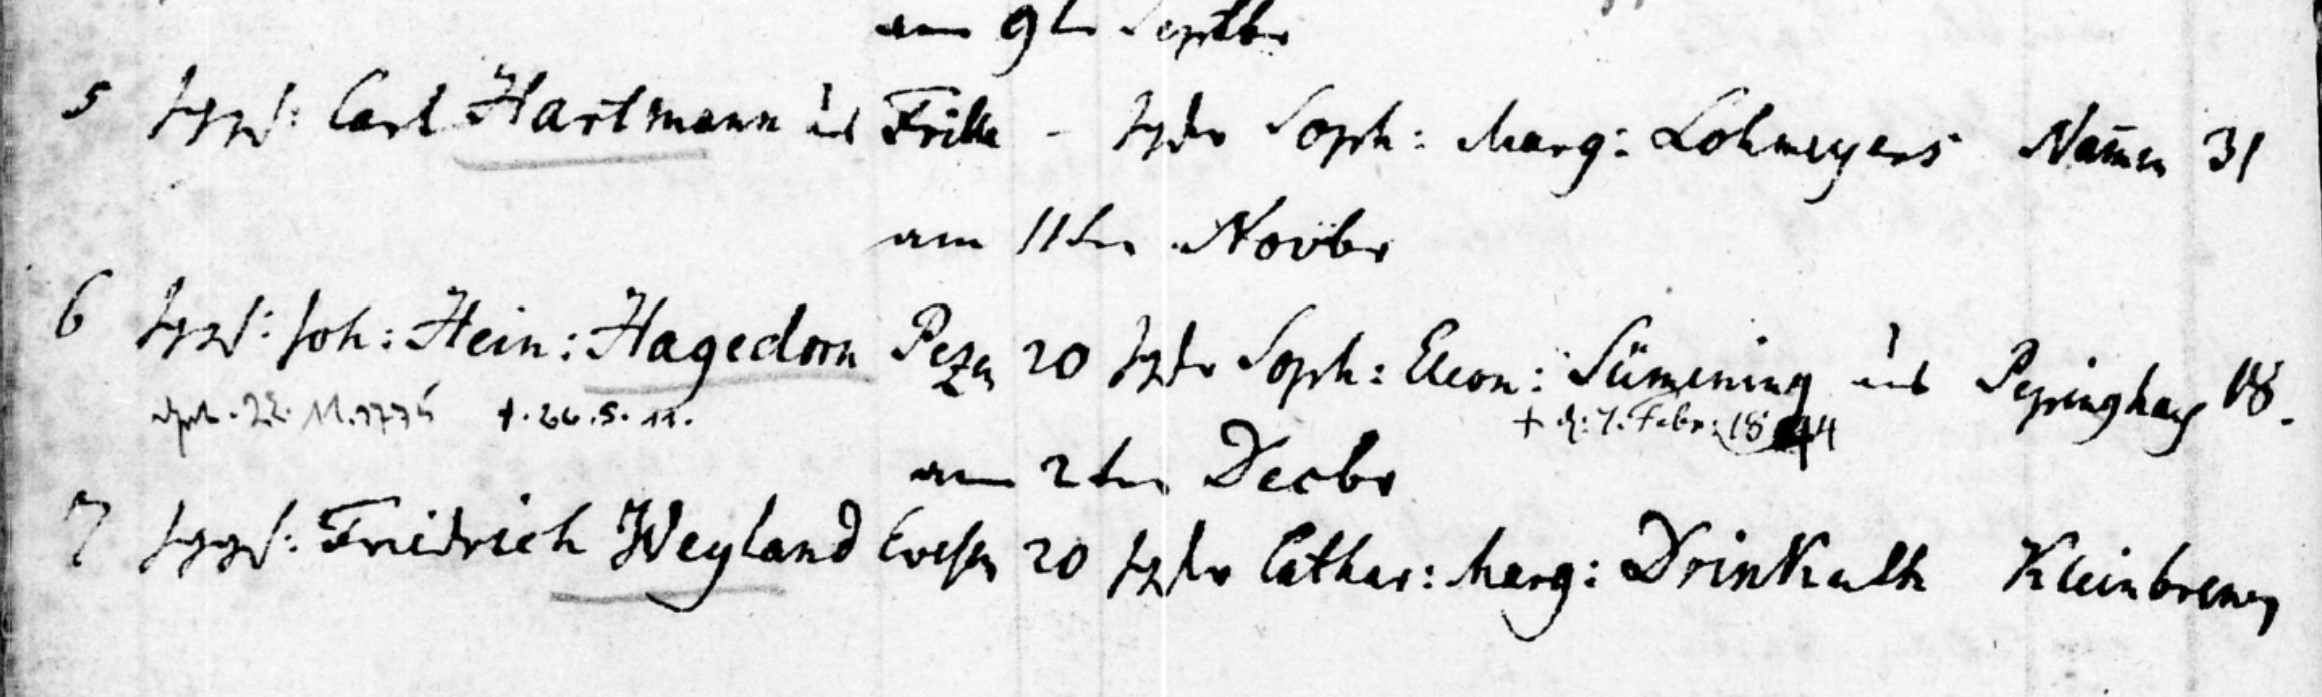 am 9ten Septbr
5 Jggs: Carl Hartmann aus Frille - Jgfr Soph: Marg: Lohmeyers Nam̄en 31
am 11ten Novbr
6 Jggs: Joh: Hein: Hagedorn Pezen 20 Jgfr Soph: Eleon: Sümening aus Pepinghag 18.
geb. 22. 11. 1775 †. 26. 5. 12. † d: 7. Febr: 1844
am 2ten Decbr
7 Jggs: Friedrich Weyland Evesen 20 Jgfr Cathar: Marg: Drinkuth Kleinbremen